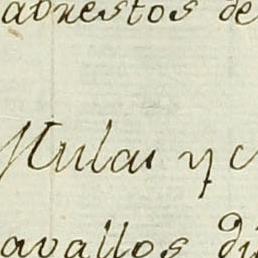 abuestos de
Mulas y c
avallos di